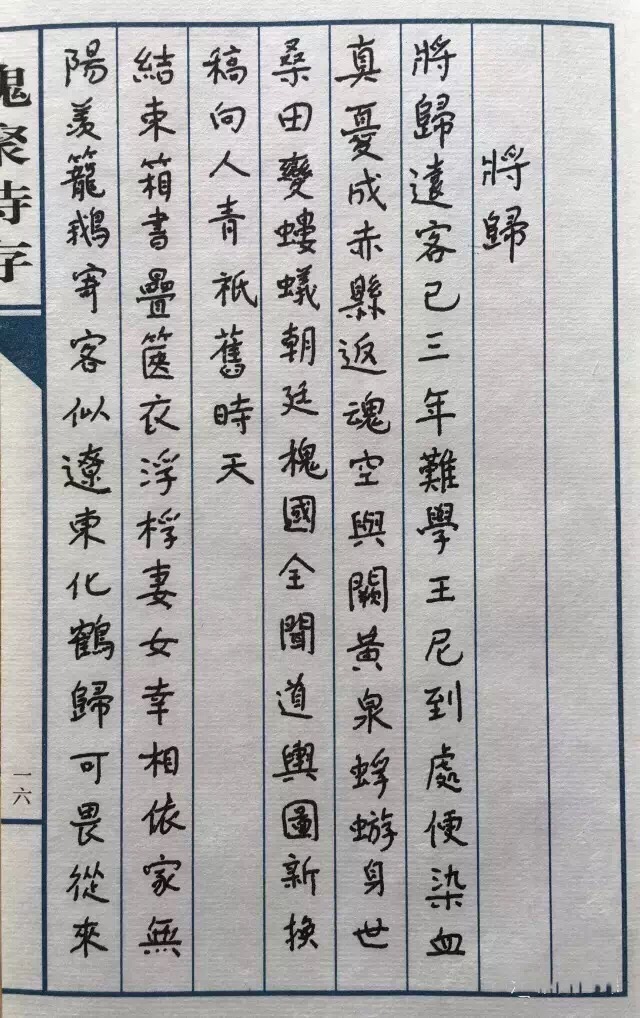 將歸
將歸遠客已三年難學王尼到處便染血
真憂成赤縣返魂空與闕黃泉蜉蝣身世
桑田變螻蟻朝廷槐國全聞道輿圖新換
稿向人青祇舊時天
結束箱書疊篋衣浮桴妻女幸相依家無
陽羨籠鵝寄客似遼東化鶴歸可畏從來
槐聚詩存
一六